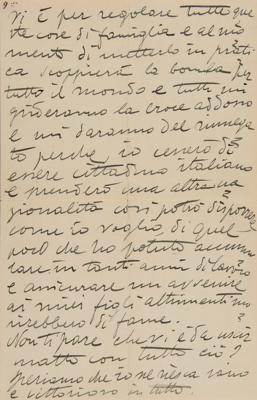 vi è per regolare tutte que
ste cose di famiglia e al mo
mento di metterlo in prati
ca scoppierà la bomba per
tutto il mondo e tutti mi
grideranno la croce addosso
e mi daranno del rinnega
to perchè io cesserò di
essere cittadino italiano
e prenderò una altra na
zionalità così potrò disporre
come io voglio, di quel
poco che ho potuto accumu
lare in tanti anni di lavoro
e assicurare un avvenire
ai miei figli altrimenti mo
rirebbero di fame.
Non ti pare che vi è da uscir
matto con tutto ciò?
Speriamo che io ne riesca sano
e vittorioso in tutto.